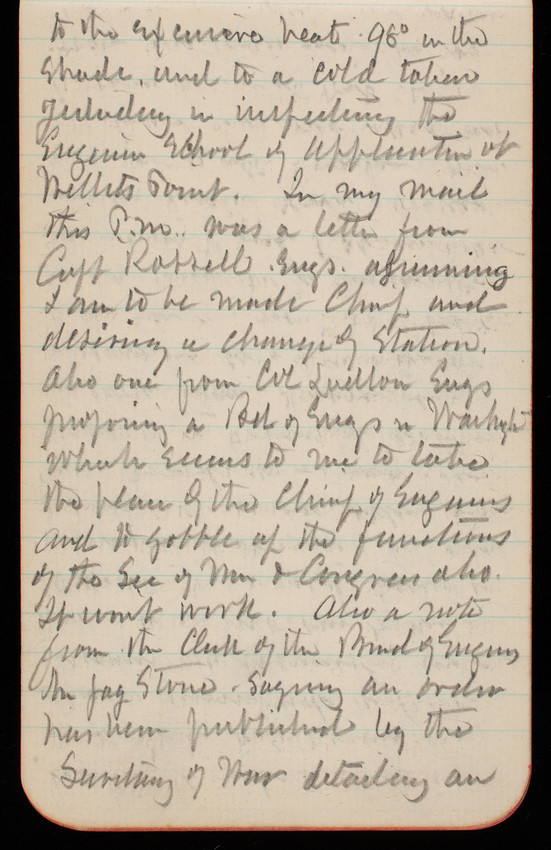 to the excessive heat. 96° in the
Shade, and to a cold taken
yesterday in inspecting the
Engineer School of Application at
Willets Point. In my mail
this P.M. was a letter from
Capt Rossell. Engs. assuming
I am to be made Chief and
desiring a change of Station.
Also one from Col Ludlow Engs
proposing a Bd of Engs in Washgtn
which seems to me to take
the place of the Chief of Engineers
and to gobble up the functions
of the Sec of War & Congress also.
It wont work. Also a note
from the Clerk of the Board of Engrs
Stone. saying an order
has been published by the
Secretary of War detailing an